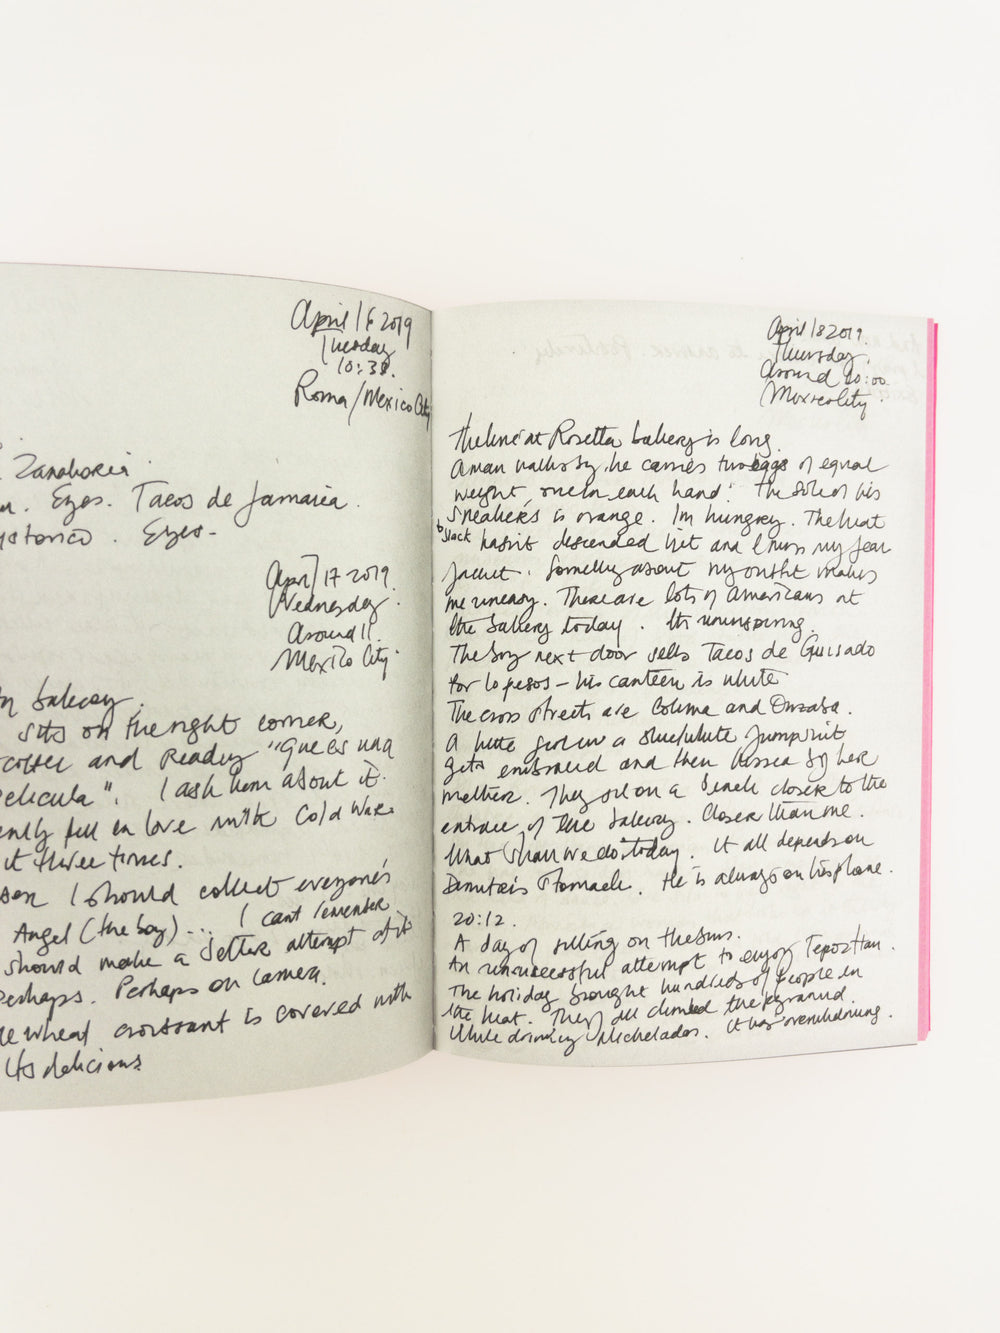 April 16 2019
Tuesday
10:38.
Roma/Mexico City
Zanahoria.
Eyes. Tacos de Jamaica.
Eyes-
April 17 2019.
Wednesday.
Around 11.
Mexico City.
bakery.
sits on the right corner,
coffee and Reading "Que es una
pelicula". I ask him about it.
fell in love with Cold War.
it three times.
I should collect everyone's
Angel (the boy)... I cant remember
should make a better attempt of it
Perhaps. Perhaps on camera.
wheat croissant is covered with
Its delicious
April 18 2019.
Thursday.
Around 10:00
Mexico City.
The line at Rosetta bakery is long.
A man walks by, he carries two bags of equal
weight, one in each hand. The sole of his
sneakers is orange. Im hungry. The heat
hasn't descended yet and I miss my
black
jacket. Something about my outfit makes
me uneasy. There are lots of Americans at
the bakery today. Its uninspiring.
The boy next door sells Tacos de Guisado
for 10 pesos - his canteen is white
The cross streets are Colima and Orizaba.
A little girl in a blue/white jumpsuit
gets embraced and then kissed by her
mother. They sit on a bench closer to the
entrance of the bakery. Closer than me.
What shall we do today. It all depends on
stomach. He is always on his phone.
20:12.
A day of sitting on the sun.
An unsuccessful attempt to enjoy Tepoztlan.
The holiday brought hundreds of people in
the heat. They all climbed the pyramid.
While drinking Micheladas. It was overwhelming.